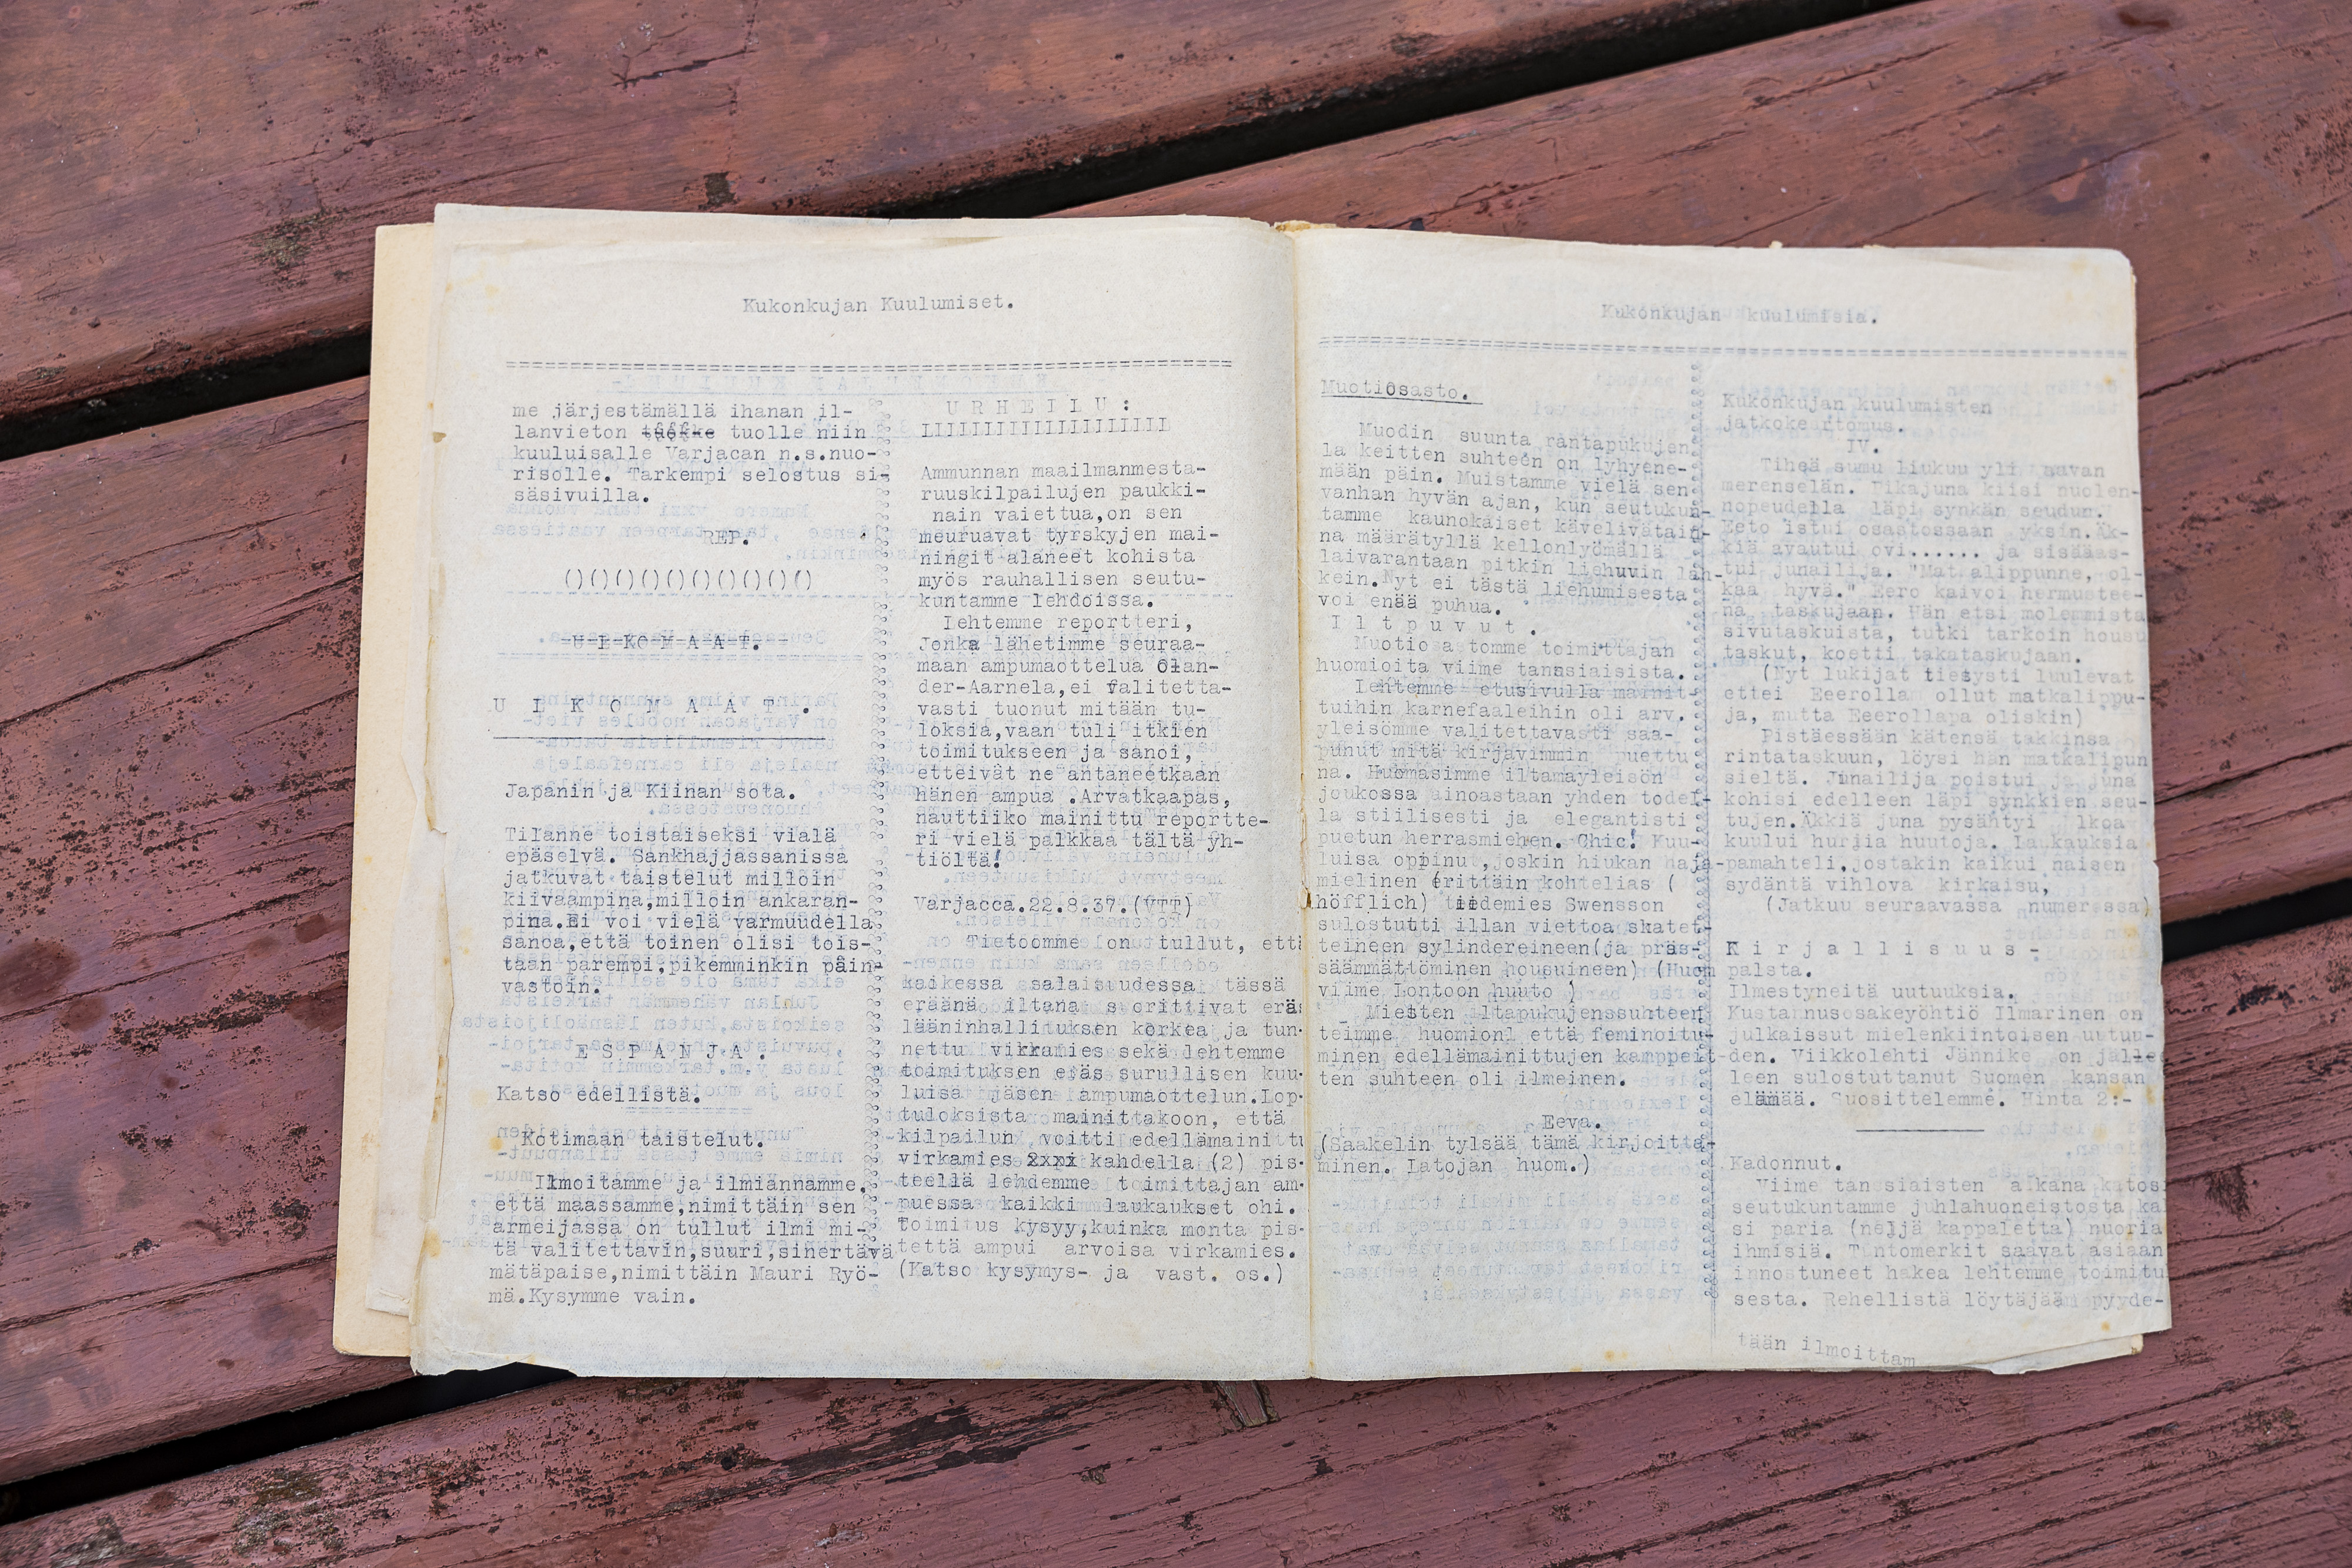 Kukonkujan Kuulumiset.
me järjestämällä ihanan il-
lanvieton tuolle niin
kuuluisalle Varjacan n.s.nuo-
risolle. Tarkempi selostus si-
säsivuilla.
REP.
()()()()()()()()()()
U L K O M A A T.
U L K O M A A T .
Japanin ja Kiinan sota.
Tilanne toistaiseksi vialä
epäselvä. Sankhajjassanissa
jatkuvat taistelut milloin
kiivaampina,milloin ankaran-
pina.Ei voi vielä varmuudella
sanoa,että toinen olisi tois-
taan parempi,pikemminkin päin-
vastoin.
E S P A N J A .
Katso edellistä.
Kotimaan taistelut.
Ilmoitamme ja ilmiannamme.
että maassamme,nimittäin sen
armeijassa on tullut ilmi mi-
tä valitettavin,suuri,sinertävä
mätäpaise,nimittäin Mauri Ryö-
mä.Kysymme vain.
U R H E I L U :
IIIIIIIIIIIIIIIIIIII
Ammunnan maailmanmesta-
ruuskilpailujen paukki-
nain vaiettua,on sen
meuruavat tyrskyjen mai-
ningit alaneet kohista
myös rauhallisen seutu-
kuntamme lehdoissa.
Lehtemme reportteri,
Jonka lähetimme seuraa-
maan ampumaottelua Olan-
der-Aarnela,ei valitetta-
vasti tuonut mitään tu-
loksia,vaan tuli itkien
toimitukseen ja sanoi,
etteivät ne antaneetkaan
hänen ampua .Arvatkaapas,
nauttiiko mainittu reportte-
ri vielä palkkaa tältä yh-
tiöltä!
Varjacca.22.8.37.(VTT)
Tietoomme on tullut, että
kaikessa salaisuudessa tässä
eräänä iltana suorittivat eräs
lääninhallituksen korkea ja tun-
nettu virkamies sekä lehtemme
toimituksen eräs surullisen kuu-
luisa jäsen ampumaottelun.Lop-
tuloksista mainittakoon, että
kilpailun voitti edellämainittu
virkamies 2xxi kahdella (2) pis-
teellä lehdemme toimittajan am-
puessa kaikki laukaukset ohi.
Toimitus kysyy,kuinka monta pis-
tettä ampui arvoisa virkamies.
(Katso kysymys- ja vast. os.)
Kukonkujan kuulumisia.
Muotiosasto.
Muodin suunta rantapukujen
la keitten suhteen on lyhyene-
mään päin. Muistamme vielä sen
vanhan hyvän ajan, kun seutukun-
tamme kaunokaiset kävelivätain-
na määrätyllä kellonlyömällä
laivarantaan pitkin liehuvin lah-
kein.Nyt ei tästä liehumisesta
voi enää puhua.
I l t p u v u t .
Muotiosastomme toimittajan
huomioita viime tanssiaisista.
Lehtemme etusivulla mainit-
tuihin karnefaaleihin oli arv.
yleisömme valitettavasti saa-
punut mitä kirjavimmin puettu
na. Huomasimme iltamayleisön
joukossa ainoastaan yhden todel-
la stiilisesti ja elegantisti
puetun herrasmiehen. Chic! Kuu-
luisa oppinut,joskin hiukan haja-
mielinen erittäin kohtelias (
höfflich) tiedemies Swensson
sulostutti illan viettoa skatet-
teineen sylindereineen(ja präs-
säämmättöminen housuineen) (Huom
viime Lontoon huuto )
Miesten iltapukujenssuhteen
teimme huomionl että feminoitu-
minen edellämainittujen kamppeit-
ten suhteen oli ilmeinen.
Eeva.
(Saakelin tylsää tämä kirjoitta-
minen. Latojan huom.)
Kukonkujan kuulumisten
jatkokertomus.
IV.
Tiheä sumu liukuu yli aavan
merenselän. Pikajuna kiisi nuolen-
nopeudella läpi synkän seudun.
Eeto istui osastossaan yksin.Äk-
kiä avautui ovi...... ja sisääas-
tui junailija. "Matkalippunne, ol-
kaa hyvä." Eero kaivoi hermustee-
na taskujaan. Hän etsi molemmista
sivutaskuista, tutki tarkoin housu
taskut, koetti takataskujaan.
(Nyt lukijat tiesysti luulevat
ettei Eeerolla ollut matkalippu-
ja, mutta Eeerollapa oliskin)
Pistäessään kätensä takkinsa
rintataskuun, löysi hän matkalipun
sieltä. Junailija poistui ja juna
kohisi edelleen läpi synkkien seu-
tujen.Äkkiä juna pysähtyi lkoa
kuului hurjia huutoja. Laukauksia
pamahteli,jostakin kaikui naisen
sydäntä vihlova kirkaisu,
(Jatkuu seuraavassa numerossa)
K i r j a l l i s u u s -
palsta.
Ilmestyneitä uutuuksia.
Kustannusosakeyöhtiö Ilmarinen on
julkaissut mielenkiintoisen uutuu-
den. Viikkolehti Jännike on jälle
leen sulostuttanut Suomen kansan
elämää. Suosittelemme. Hinta 2:-
Kadonnut.
Viime tanssiaisten aikana katosi
seutukuntamme juhlahuoneistosta kak
si paria (neljä kappaletta) nuoria
ihmisiä. Tuntomerkit saavat asiaan
innostuneet hakea lehtemme toimitu
sesta. Rehellistä löytäjää pyyde-
tään ilmoittam